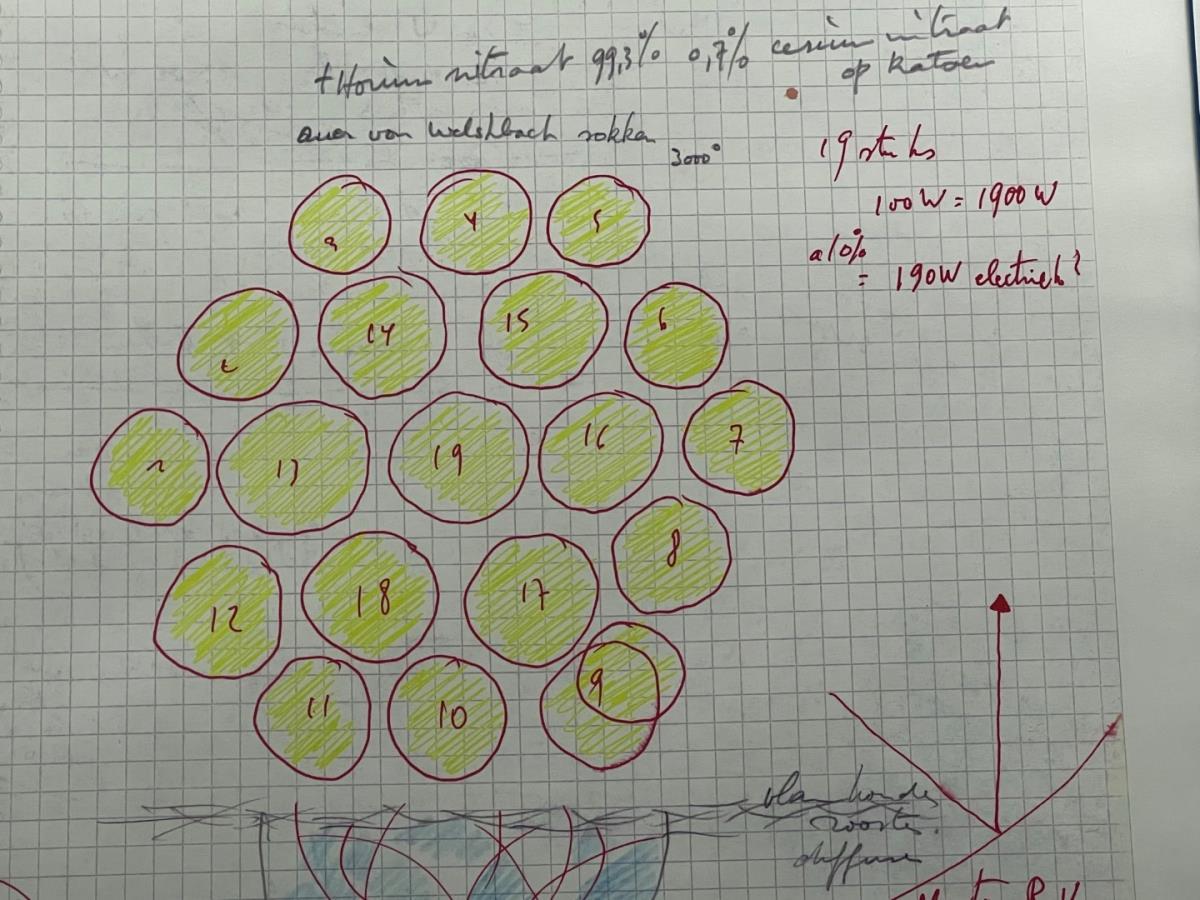 thorium nitraat 99,3% 0,7% cerium nitraat
op katoen
auer von welshbach sokken
3000°
19 stuks
100W = 1900 W
a 10%
= 190W electrisch?
3 4 5
2 14 15 6
1 13 19 16 7
12 18 17 8
11 10 9
vlam
rooster
diffuse